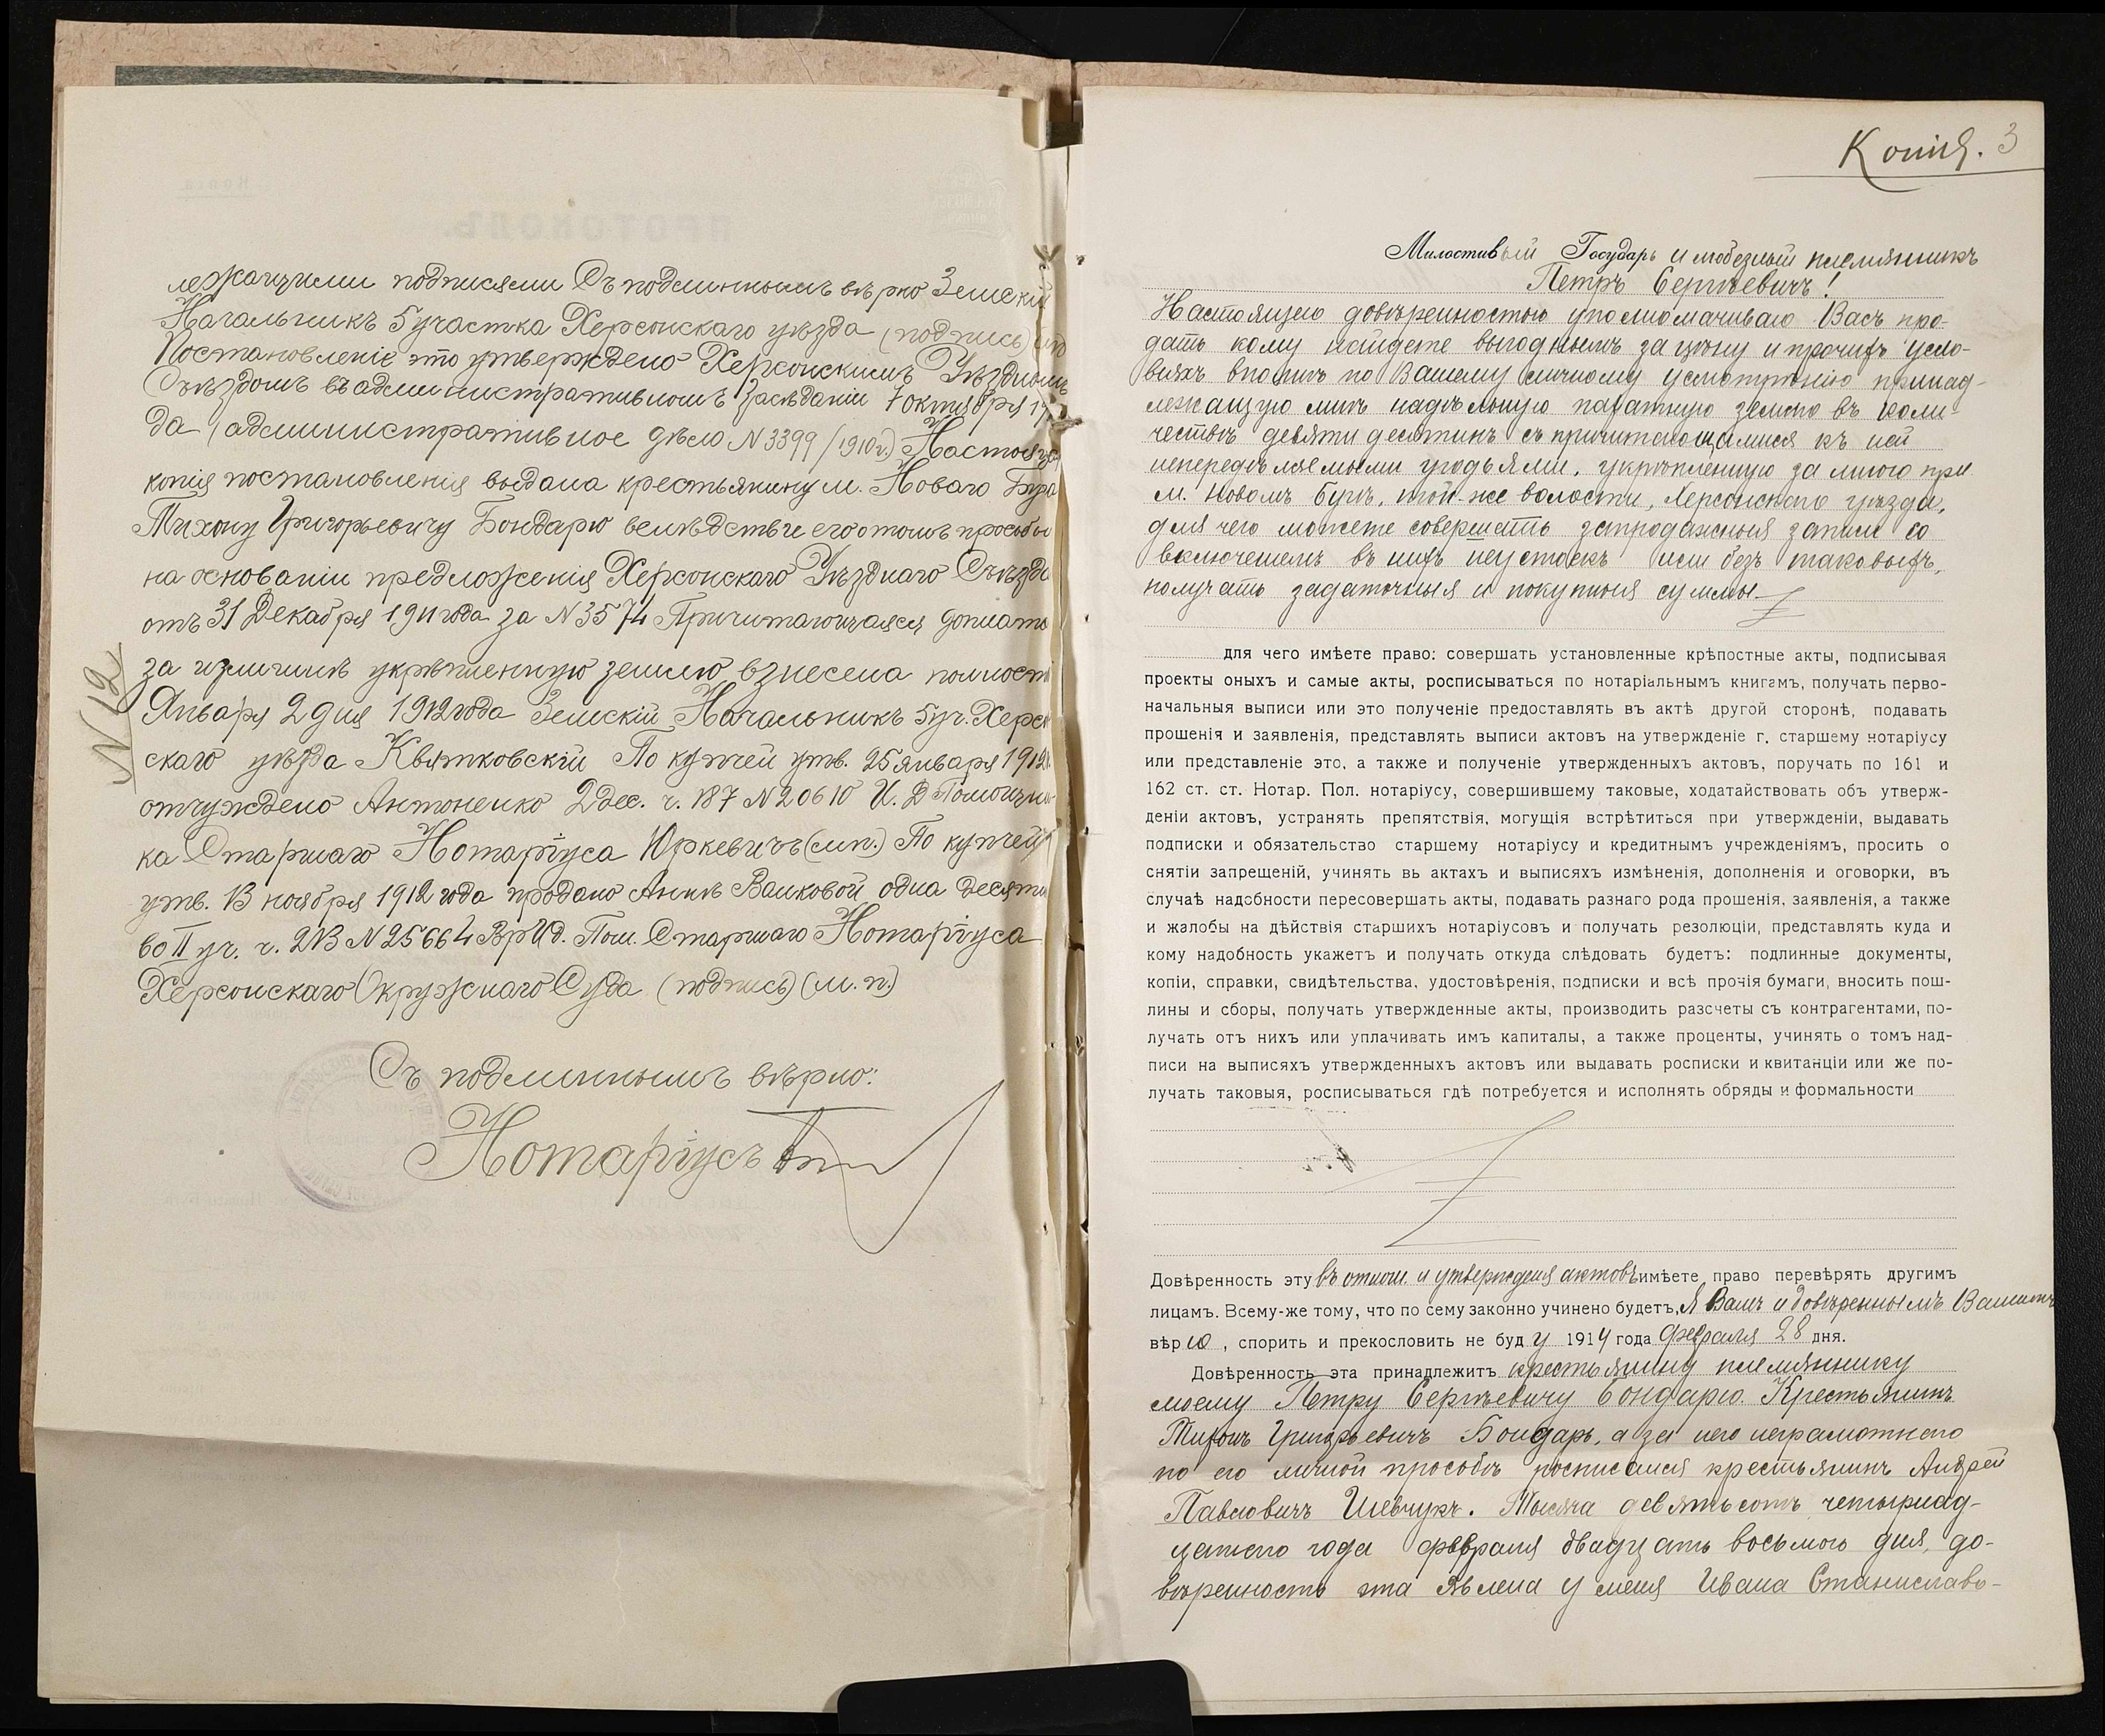 лежащими подписями Съ подлиннымъ вѣрно Земскій
Начальникъ 5 участка Херсонскаго уѣзда (подпись)
Постановленіе это утверждено Херсонскимъ Уѣзднымъ
Съѣздомъ въ административномъ засѣданіи 7 октября 19
да (административное дѣло N 3399/1910 г.) Настояща
копія постановленія выдана крестьянину м. Новаго Буга
Тихону Григорьевичу Бондарю вслѣдствіе его о томъ просьбы
на основаніи предложенія Херсонскаго Уѣзднаго Съѣзда
отъ 31 Декабря 1911 года за N 3574 Причитающаяся доплата
за излишнѣ укрѣпленную землю взнесена полност
N 12
Января 2 дня 1912 года Земскій Начальникъ 5 уч. Херсо
скаго уѣзда Квятковскій По купчей утв. 25 января 1912
отчуждено Антоненко 2 дес. ч. 187 N 20610 И. Д Помощни
ка Старшаго Нотаріуса Юркевичъ (м.п.) По купчей
утв. 13 ноября 1912 года продано Аннѣ Ванковой одна десяти
во II уч. ч. 213 N 25664 ВрИд. Пом. Старшаго Нотаріуса
Херсонскаго Окружнаго Суда (подпись) (м. п.)
Съ подлиннымъ вѣрно:
Нотаріусъ
Копія. 3
Милостивый Государь и любезный племянникъ
Петръ Сергѣевичъ!
Настоящею довѣренностью уполномачиваю Васъ про-
дать кому найдете выгоднымъ за цѣну и прочихъ усло-
віяхъ вполнѣ по Вашему личному усмотрѣнію принад-
лежащую мнѣ надѣльную пахатную землю въ коли-
чествѣ девяти десятинъ съ причитающимися къ ней
непередѣляемыми угодьями, укрѣпленную за мною при
м. Новомъ Бугѣ, той-же волости, Херсонскаго уѣзда,
для чего можете совершать запродажныя записи со
включеніемъ въ нихъ неустоекъ или безъ таковыхъ,
получать задаточныя и покупныя суммы.
для чего имѣете право: совершать установленные крѣпостные акты, подписывая
проекты оныхъ и самые акты, росписываться по нотаріальнымъ книгамъ, получать перво-
начальныя выписи или это полученіе предоставлять въ актѣ другой сторонѣ, подавать
прошенія и заявленія, представлять выписи актовъ на утвержденіе г. старшему нотаріусу
или представленіе это, а также и полученіе утвержденныхъ актовъ, поручать по 161 и
162 ст. ст. Нотар. Пол. нотаріусу, совершившему таковые, ходатайствовать объ утверж-
деніи актовъ, устранять препятствія, могущія встрѣтиться при утвержденіи, выдавать
подписки и обязательство старшему нотаріусу и кредитнымъ учрежденіямъ, просить о
снятіи запрещеній, учинять вь актахъ и выписяхъ измѣненія, дополненія и оговорки, въ
случаѣ надобности пересовершать акты, подавать разнаго рода прошенія, заявленія, а также
и жалобы на дѣйствія старшихъ нотаріусовъ и получать резолюціи, представлять куда и
кому надобность укажетъ и получать откуда слѣдовать будетъ: подлинные документы,
копіи, справки, свидѣтельства, удостовѣренія, подписки и всѣ прочія бумаги, вносить пош-
лины и сборы, получать утвержденные акты, производить разсчеты съ контрагентами, по-
лучать отъ нихъ или уплачивать имъ капиталы, а также проценты, учинять о томъ над-
писи на выписяхъ утвержденныхъ актовъ или выдавать росписки и квитанціи или же по-
лучать таковыя, росписываться гдѣ потребуется и исполнять обряды и формальности
Довѣренность эту въ отнош. и утвержденія актовъ имѣете право перевѣрять другимъ
лицамъ. Всему-же тому, что по сему законно учинено будетъ, я Вамъ и довѣреннымъ Вашимъ
вѣрю, спорить и прекословить не буду 1914 года февраля 28 дня.
Довѣренность эта принадлежитъ крестьянину племяннику
моему Петру Сергѣевичу Бондарю. Крестьянинъ
Тихонъ Григорьевичъ Бондарь, а за него неграмотнаго
по его личной просьбѣ росписался крестьянинъ Андрей
Павловичъ Шевчукъ. Тысяча девятьсотъ четырнад-
цатаго года февраля двадцать восьмого дня, до-
вѣренность эта явлена у меня Ивана Станиславо-